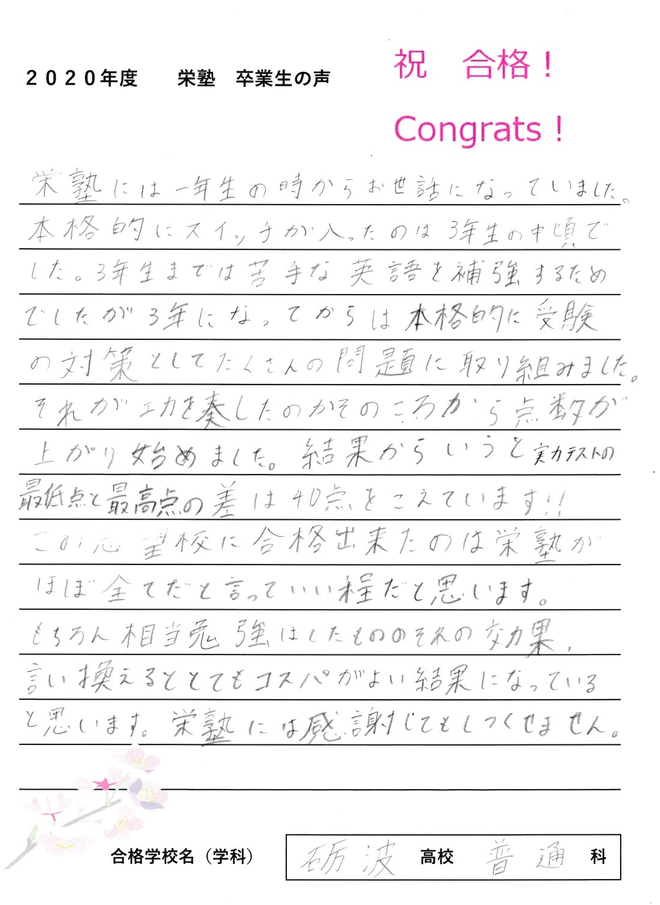 2020年度　　栄塾　卒業生の声
祝　合格！
Congrats！
栄塾には一年生の時からお世話になっていました。
本格的にスイッチが入ったのは3年生の中頃で
した。3年生までは苦手な英語を補強するため
でしたが3年になってからは本格的に受験
の対策としてたくさんの問題に取り組みました。
それが功を奏したのかそのころから点数が
上がり始めました。結果からいうと実力テストの
最低点と最高点の差は40点をこえています!!
この志望校に合格出来たのは栄塾が
ほぼ全てだと言っていい程だと思います。
もちろん相当勉強はしたもののそれの効果,
言い換えるととてもコスパがよい結果になっている
と思います。栄塾には感謝じてもしつくせません。
合格学校名（学科）　砺波　高校　普通　科